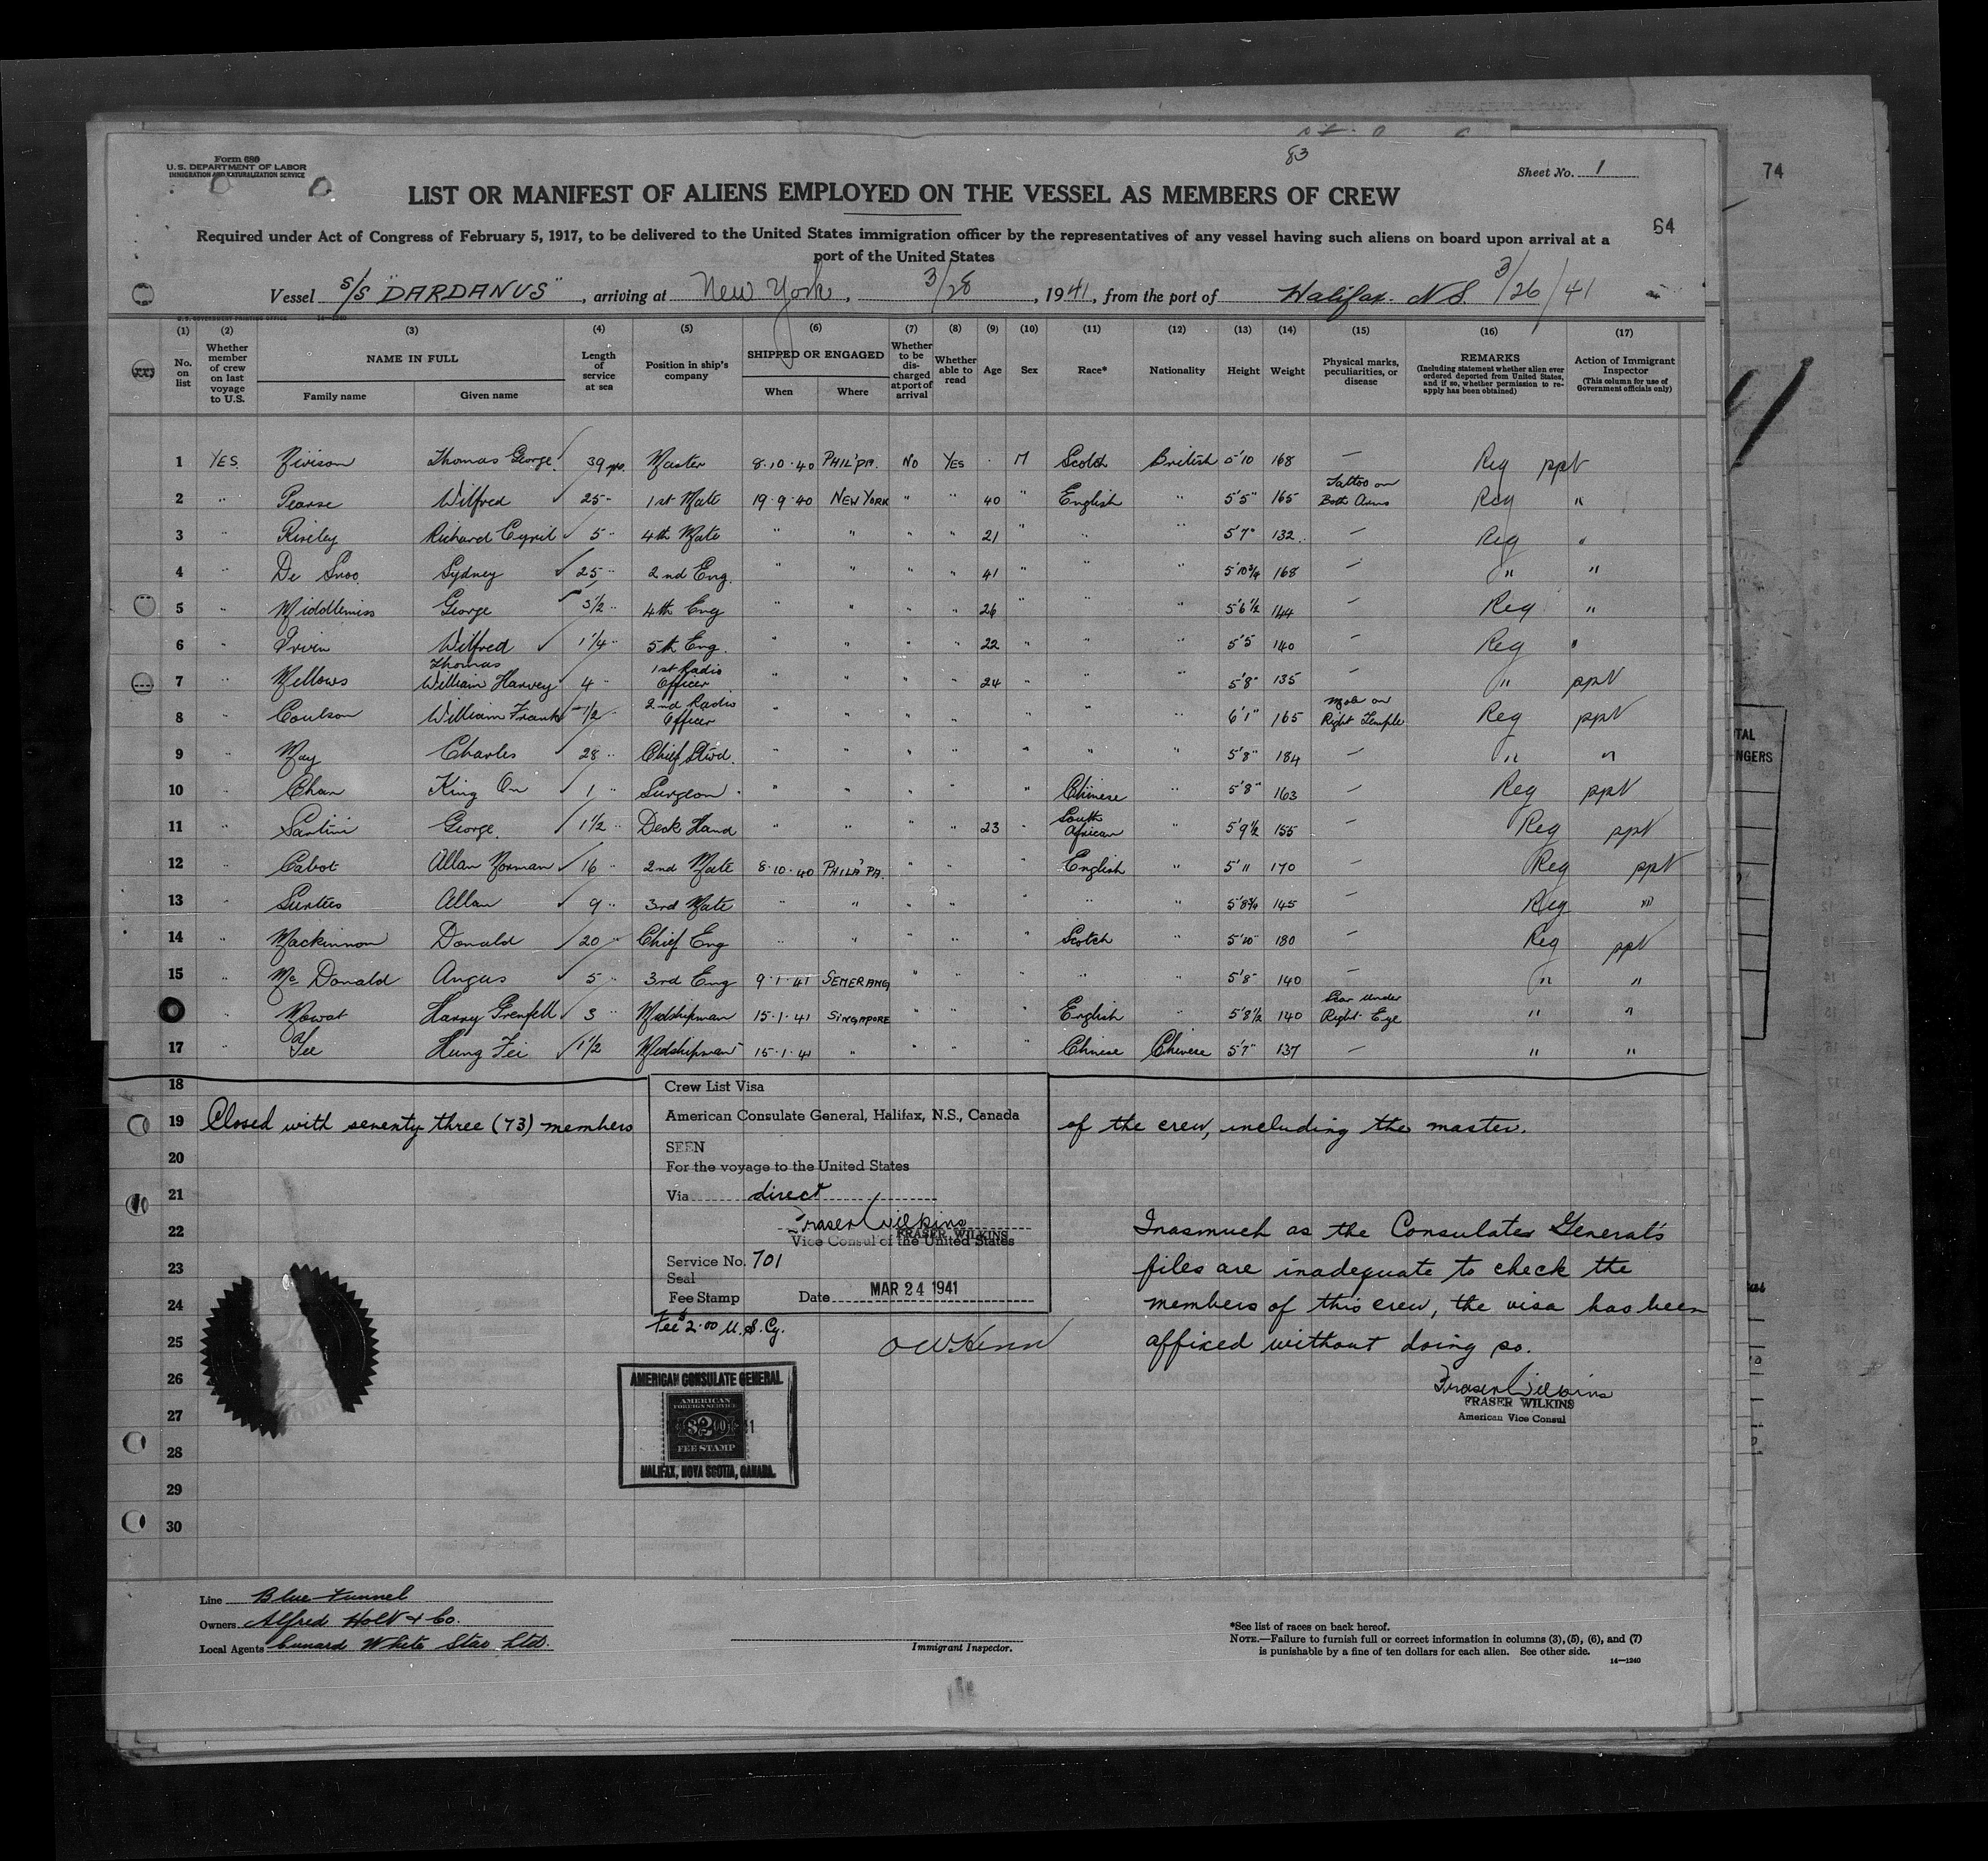 83
Form 680
U.S. DEPARTMENT OF LABOR
IMMIGRATION AND NATURALIZATION SERVICE
Sheet No. 1
74
LIST OR MANIFEST OF ALIENS EMPLOYED ON THE VESSEL AS MEMBERS OF CREW
64
Required under Act of Congress of February 5, 1917, to be delivered to the United States immigration officer by the representatives of any vessel having such aliens on board upon arrival at a
port of the United States
Vessel S/S "DARDANUS", arriving at New York, 3/28, 1941, from the port of Halifax. N.S. 3/26/41
U.S. GOVERNMENT PRINTING OFFICE 14—1240
(1) (2) (3) (4) (5) (6) (7) (8) (9) (10) (11) (12) (13) (14) (15) (16) (17)
No. on list Whether member of crew on last voyage to U.S. NAME IN FULL Family name Given name Length of service at sea Position in ship's company SHIPPED OR ENGAGED When Where Whether to be discharged at port of arrival Whether able to read Age Sex Race* Nationality Height Weight Physical marks, peculiarities, or disease REMARKS (Including statement whether alien ever ordered deported from United States, and if so, whether permission to reapply has been obtained) Action of Immigrant Inspector (This column for use of Government officials only)
1 YES Nivison Thomas George 39 yrs. Master 8.10.40 PHIL'PA. NO YES M Scotch British 5'10 168 — Reg ppt
2 " Pearse Wilfred 25 " 1st Mate 19.9.40 NEW YORK " " 40 " English " 5'5" 165 Tattoo on Both Arms Reg "
3 " Riseley Richard Cyril 5 " 4th Mate " " " " 21 " " " 5'7" 132 — Reg "
4 " De Snoo Sydney 25 " 2nd Eng. " " " " 41 " " " 5'10¾ 168 — " "
5 " Middlemiss George 3½ " 4th Eng " " " " 26 " " " 5'6½ 144 — Reg "
6 " Irvin Wilfred 1¼ " 5th Eng. " " " " 22 " " " 5'5 140 — Reg "
7 " Mellows Thomas William Harvey 4 " 1st Radio Officer " " " " 24 " " " 5'8" 135 — " ppt
8 " Coulson William Frank ½ " 2nd Radio Officer " " " " " " " 6'1" 165 Mole on Right Temple Reg ppt
9 " May Charles 28 " Chief Stwd. " " " " " " " 5'8" 184 — " "
10 " Chan King On 1 " Surgeon " " " " " Chinese " 5'8" 163 — Reg ppt
11 " Santini George 1½ " Deck Hand " " " " 23 " South African " 5'9½ 155 — Reg ppt
12 " Cabot Allan Norman 16 " 2nd Mate 8.10.40 PHILA'PA. " " " English " 5'11 170 — Reg ppt
13 " Surtees Allan 9 " 3rd Mate " " " " " " " 5'8¾ 145 — Reg "
14 " Mackinnon Donald 20 " Chief Eng " " " " " Scotch " 5'10" 180 — Reg ppt
15 " Mc Donald Angus 5 " 3rd Eng 9.1.41 SEMERANG " " " " " 5'8" 140 — " "
" Mowat Harry Grenfell 3 " Midshipman 15.1.41 SINGAPORE " " " English " 5'8½ 140 Scar under Right Eye " "
17 " Yee Hung Fei 1½ Midshipman 15.1.41 " " " " Chinese Chinese 5'7" 137 — " "
18
19 Closed with seventy three (73) members of the crew, including the master.
20
21
22
23
24
25
26
27
28
29
30
Crew List Visa
American Consulate General, Halifax, N.S., Canada
SEEN
For the voyage to the United States
Via direct
Fraser Wilkins
FRASER WILKINS
Vice Consul of the United States
Service No. 701
Seal
Fee Stamp Date MAR 24 1941
Fee $2.00 U.S. Cy.
Inasmuch as the Consulate General's
files are inadequate to check the
members of this crew, the visa has been
affixed without doing so.
Fraser Wilkins
FRASER WILKINS
American Vice Consul
AMERICAN CONSULATE GENERAL
AMERICAN
FOREIGN SERVICE
$2.00
FEE STAMP
HALIFAX, NOVA SCOTIA, CANADA.
TAL
NGERS
Line Blue Funnel
Owners Alfred Holt & Co.
Local Agents Cunard White Star Ltd.
Immigrant Inspector.
*See list of races on back hereof.
NOTE.—Failure to furnish full or correct information in columns (3), (5), (6), and (7)
is punishable by a fine of ten dollars for each alien. See other side.
14—1240